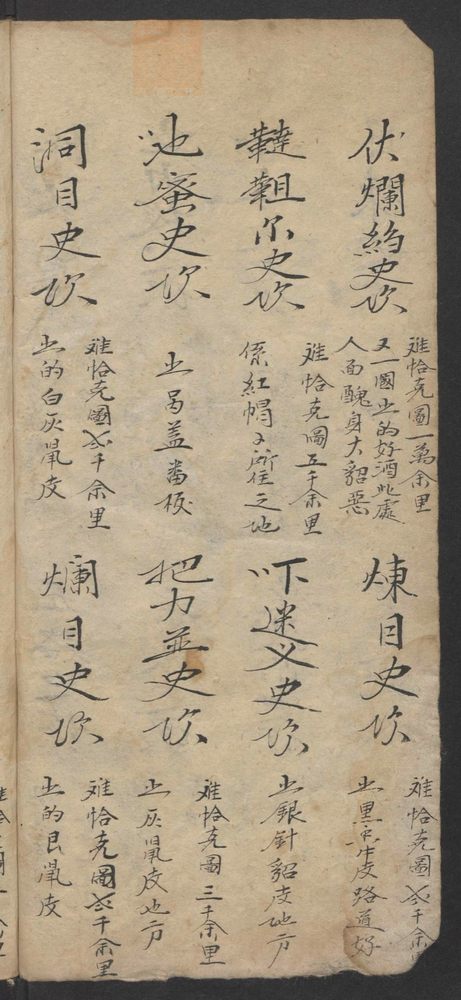 伏爛約史坎
难恰克圖一萬余里
又一國出的好酒此處
人面醜身大貂恶
煉目史坎
难恰克圖弍千余里
出黑牛皮路道好
韃靼尔史坎
难恰克圖五千余里
係紅帽子所住之地
吓迷义史坎
出銀針貂皮地方
蜜史坎
出曷盖畨板
把力並史坎
难恰克圖三千余里
出灰鼠皮地方
洞目史坎
难恰克圖弍千余里
出的白灰鼠皮
爛目史坎
难恰克圖弍千余里
出的艮鼠皮